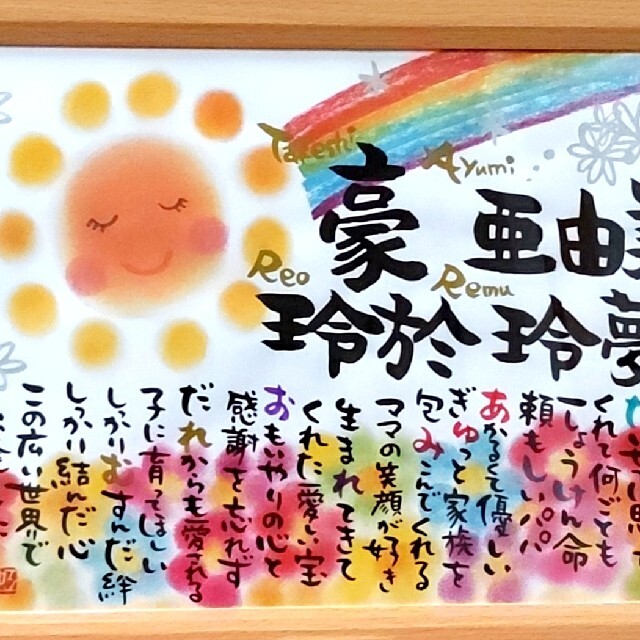 Takeshi
Ayumi
豪 亜由美
Reo
Remu
玲於 玲夢
くれて何ごとも
一しょうけん命
頼もしいパパ
あかるくて優しい
ぎゅっと家族を
包みこんでくれる
ママの笑顔が好き
生まれてきて
くれた愛しい宝
おもいやりの心と
感謝を忘れず
だれからも愛される
子に育ってほしい
しっかりむすんだ絆
しっかり結んだ心
この広い世界で